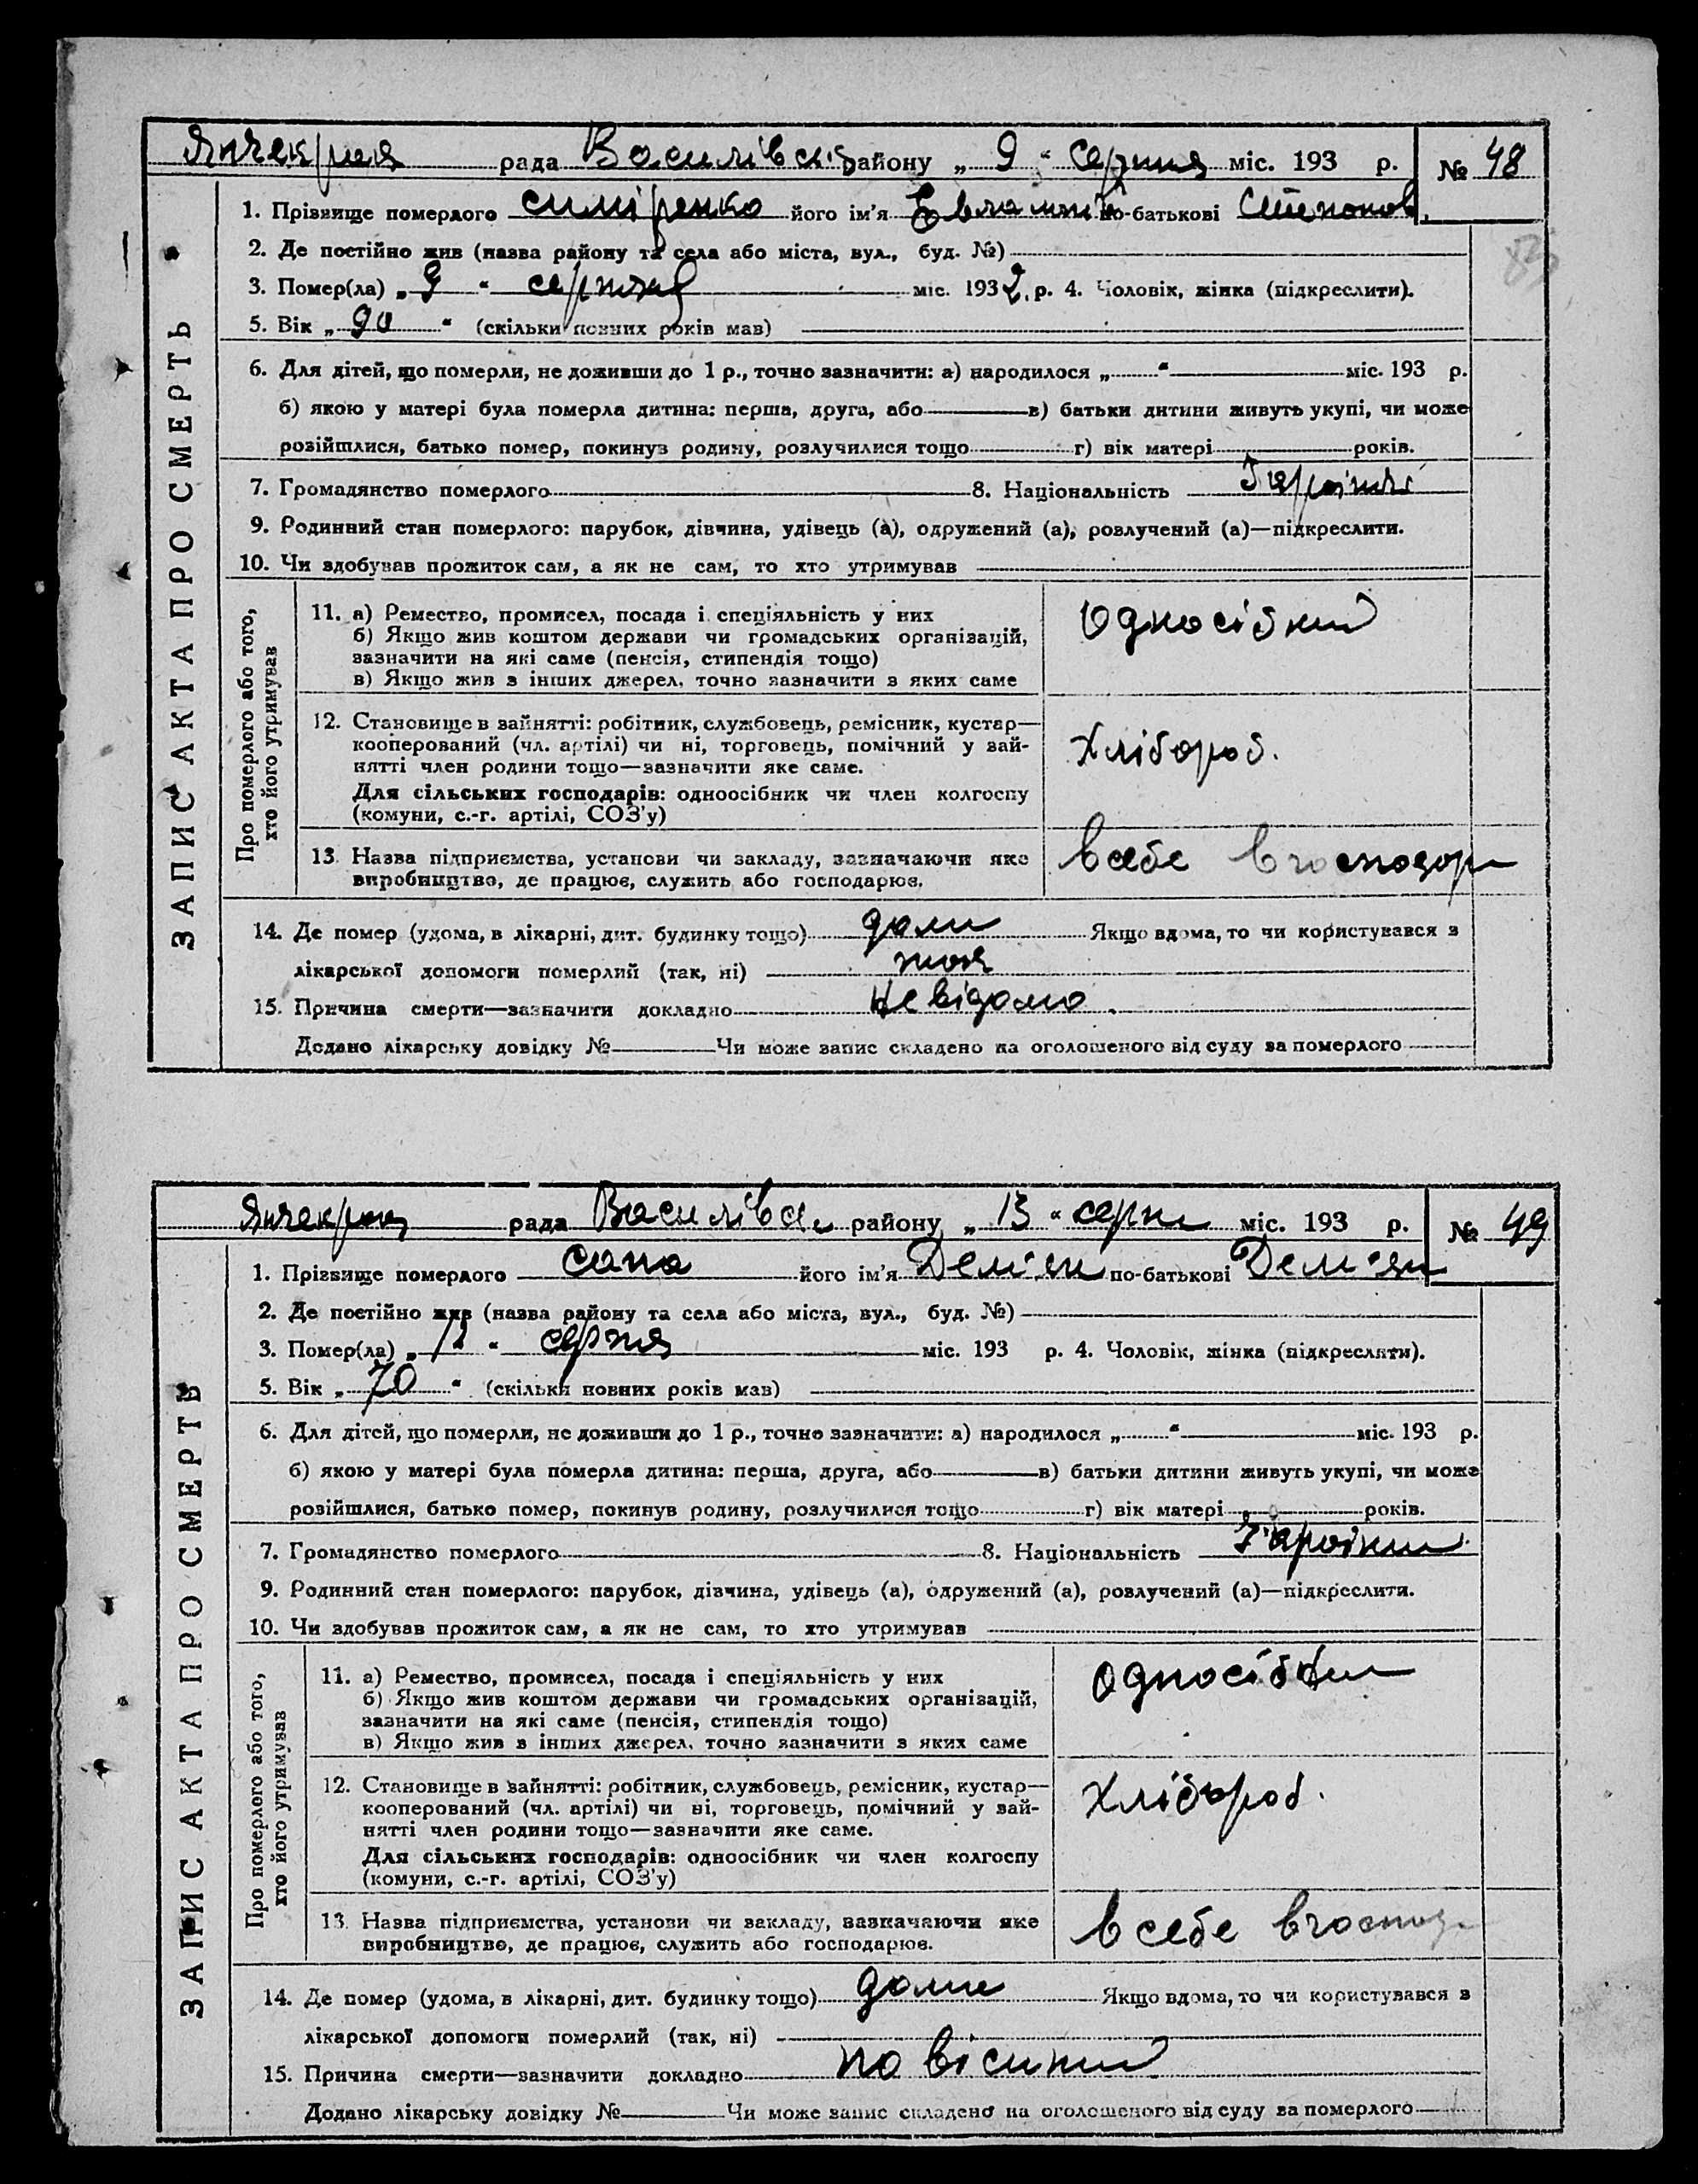 Янчекрак рада Василівськ району „ 9 “ серпня міс. 193 р. № 48
ЗАПИС АКТА ПРО СМЕРТЬ
1. Прізвище померлого Симіренко його ім'я по-батькові Степанов.
2. Де постійно жив (назва району та села або міста, вул., буд. №)
3. Помер(ла) „ 9 “ серпня міс. 1932 р. 4. Чоловік, жінка (підкреслити).
5. Вік „ 90 “ (скільки повних років мав)
6. Для дітей, що померли, не доживши до 1 р., точно зазначити: а) народилося „ “ міс. 193 р.
б) якою у матері була померла дитина: перша, друга, або в) батьки дитини живуть укупі, чи може
розійшлися, батько помер, покинув родину, розлучилися тощо г) вік матері років.
7. Громадянство померлого 8. Національність
9. Родинний стан померлого: парубок, дівчина, удівець (а), одружений (а), розлучений (а)—підкреслити.
10. Чи здобував прожиток сам, а як не сам, то хто утримував
Про померлого або того,
хто його утримував
11. а) Ремество, промисел, посада і спеціяльність у них
б) Якщо жив коштом держави чи громадських організацій,
зазначити на які саме (пенсія, стипендія тощо)
в) Якщо жив з інших джерел, точно зазначити з яких саме
Односібний
12. Становище в зайнятті: робітник, службовець, ремісник, кустар—
кооперований (чл. артілі) чи ні, торговець, помічний у зай-
нятті член родини тощо—зазначити яке саме.
Для сільських господарів: одноосібник чи член колгоспу
(комуни, с.-г. артілі, СОЗ'у)
Хлібороб.
13. Назва підприємства, установи чи закладу, зазначаючи яке
виробництво, де працює, служить або господарює.
в себе в господар
14. Де помер (удома, в лікарні, дит. будинку тощо) дома Якщо вдома, то чи користувався з
лікарської допомоги померлий (так, ні)
15. Причина смерти—зазначити докладно невідомо.
Додано лікарську довідку № Чи може запис складено на оголошеного від суду за померлого
Янчекрак рада Василівськ району „ 13 “ серпн міс. 193 р. № 49
ЗАПИС АКТА ПРО СМЕРТЬ
1. Прізвище померлого Сапа його ім'я Дем'ян по-батькові Дем'ян
2. Де постійно жив (назва району та села або міста, вул., буд. №)
3. Помер(ла) „ 12 “ серпня міс. 193 р. 4. Чоловік, жінка (підкреслити).
5. Вік „ 70 “ (скільки повних років мав)
6. Для дітей, що померли, не доживши до 1 р., точно зазначити: а) народилося „ “ міс. 193 р.
б) якою у матері була померла дитина: перша, друга, або в) батьки дитини живуть укупі, чи може
розійшлися, батько помер, покинув родину, розлучилися тощо г) вік матері років.
7. Громадянство померлого 8. Національність
9. Родинний стан померлого: парубок, дівчина, удівець (а), одружений (а), розлучений (а)—підкреслити.
10. Чи здобував прожиток сам, а як не сам, то хто утримував
Про померлого або того,
хто його утримував
11. а) Ремество, промисел, посада і спеціяльність у них
б) Якщо жив коштом держави чи громадських організацій,
зазначити на які саме (пенсія, стипендія тощо)
в) Якщо жив з інших джерел, точно зазначити з яких саме
Односібни
12. Становище в зайнятті: робітник, службовець, ремісник, кустар—
кооперований (чл. артілі) чи ні, торговець, помічний у зай-
нятті член родини тощо—зазначити яке саме.
Для сільських господарів: одноосібник чи член колгоспу
(комуни, с.-г. артілі, СОЗ'у)
Хлібороб.
13. Назва підприємства, установи чи закладу, зазначаючи яке
виробництво, де працює, служить або господарює.
в себе в господ
14. Де помер (удома, в лікарні, дит. будинку тощо) доми Якщо вдома, то чи користувався з
лікарської допомоги померлий (так, ні)
15. Причина смерти—зазначити докладно повісиний
Додано лікарську довідку № Чи може запис складено на оголошеного від суду за померлого